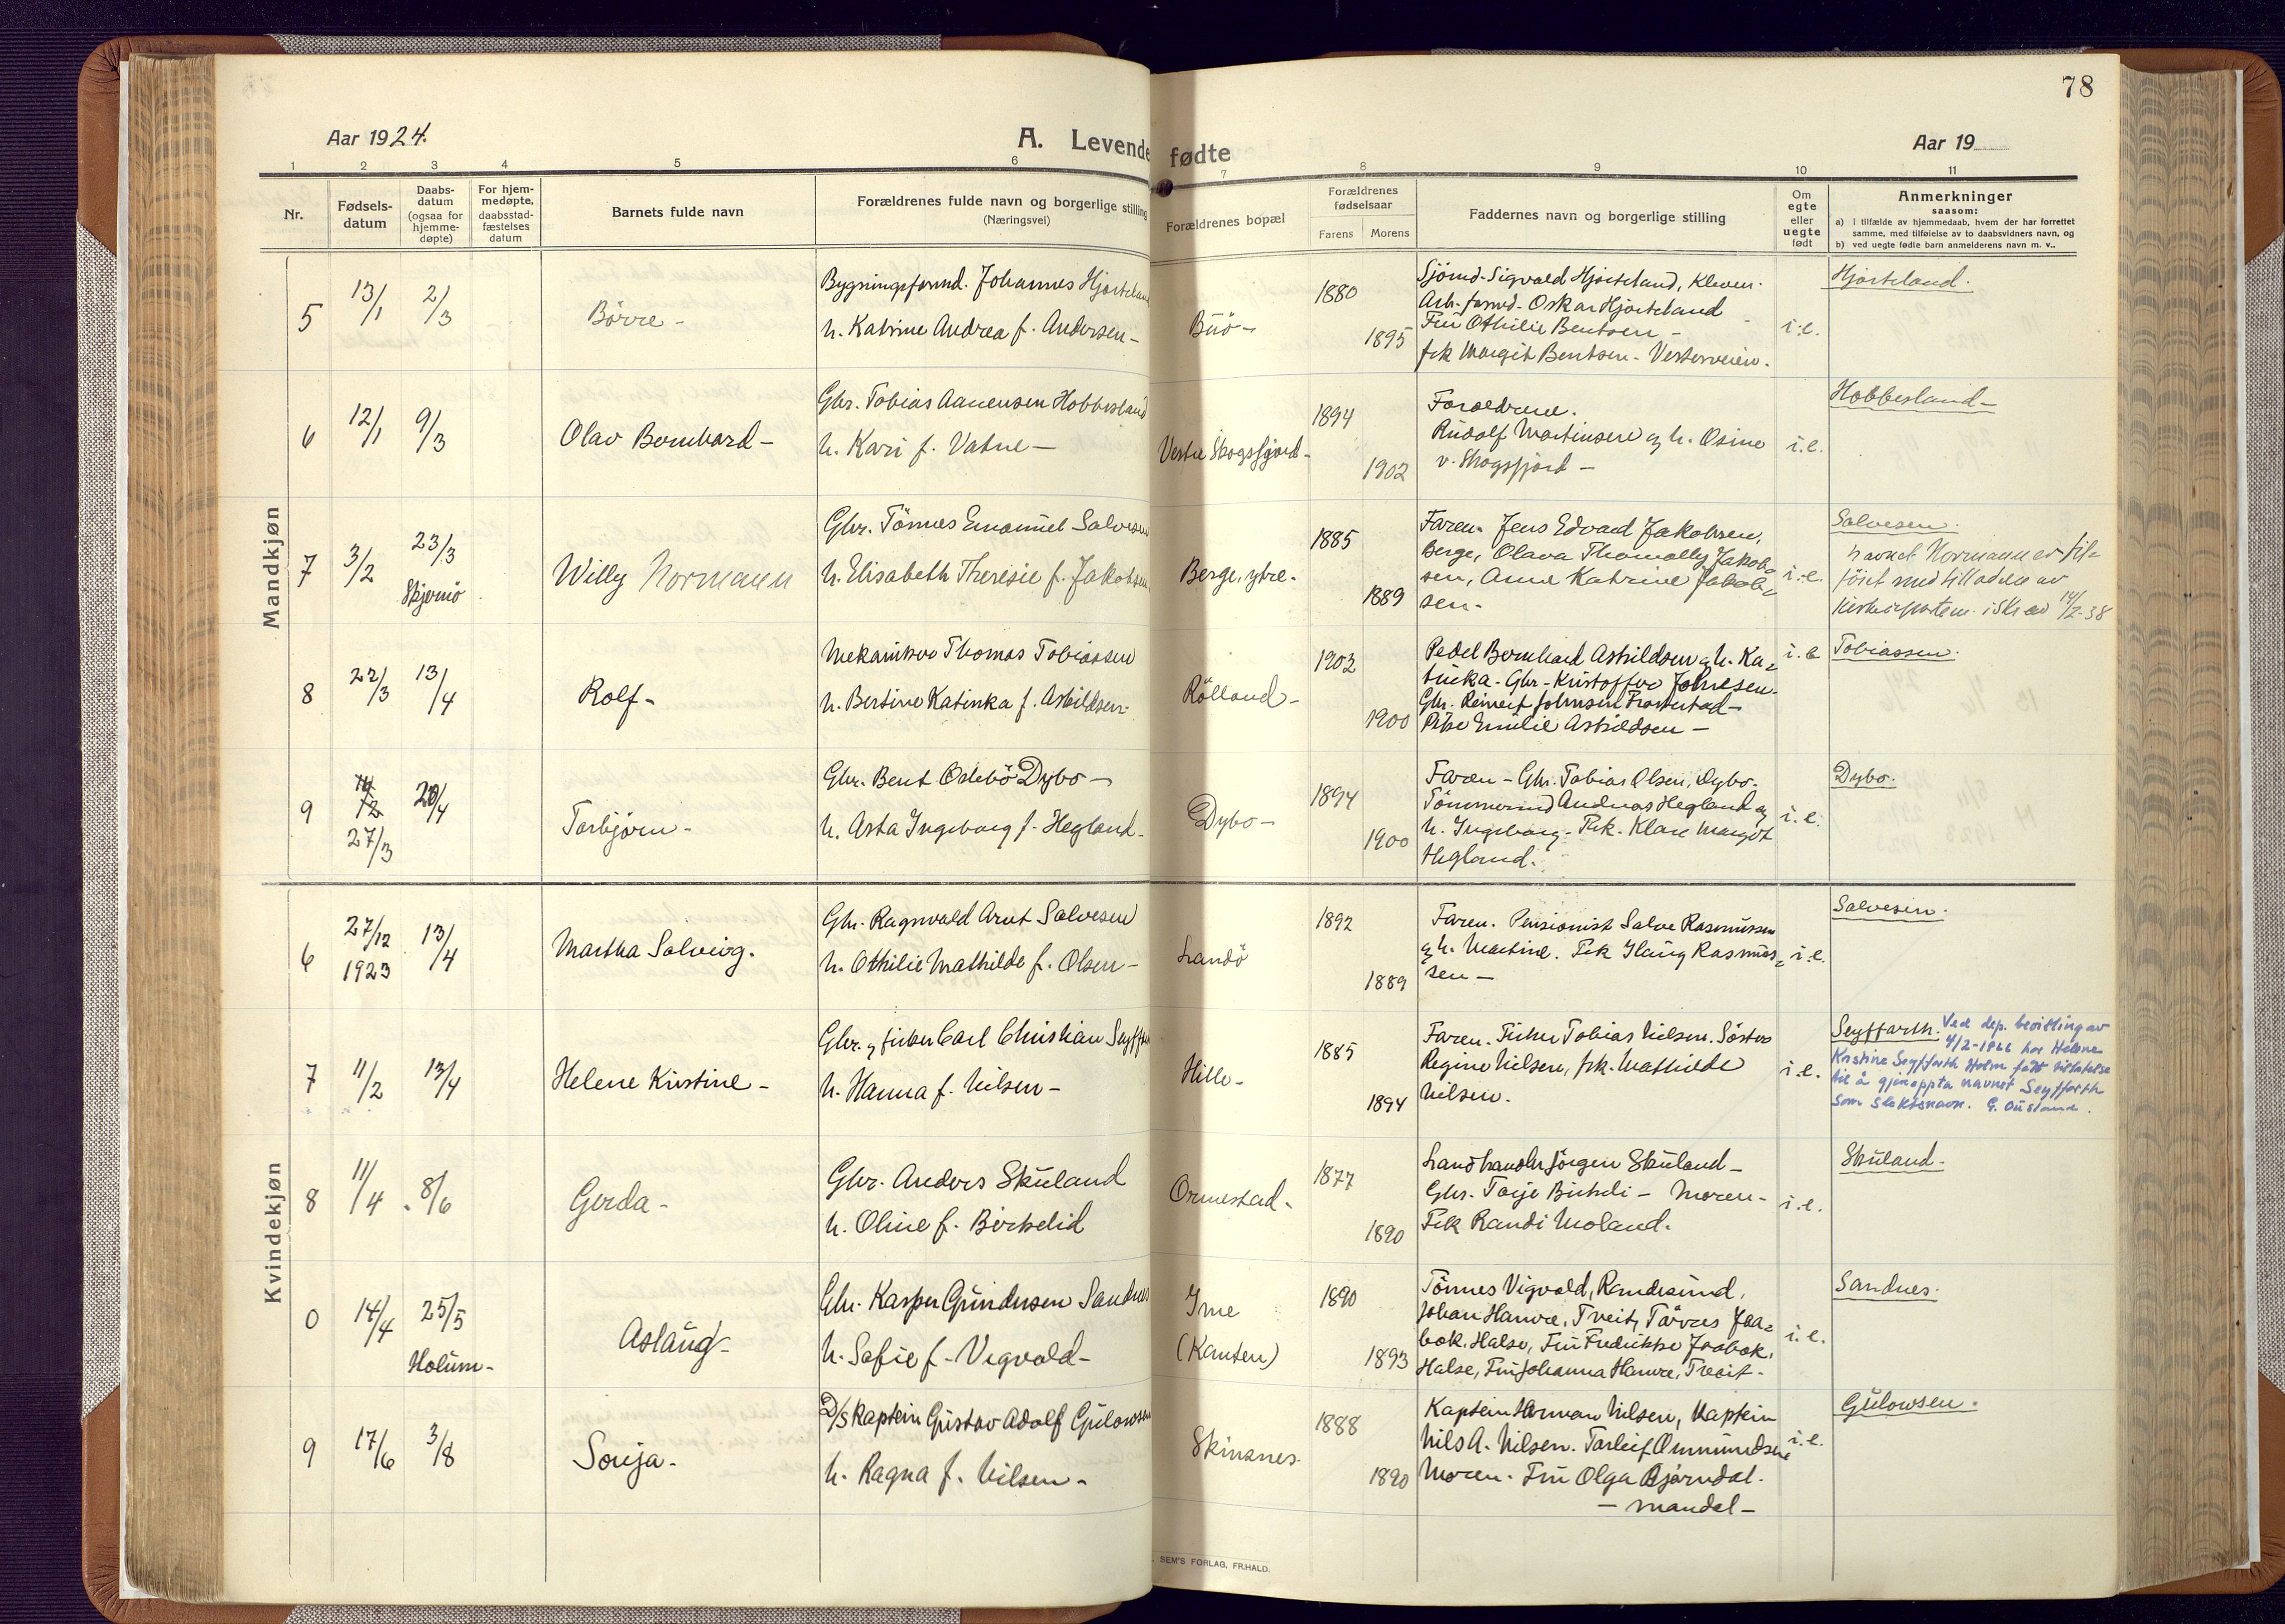 78
Aar 1924.
A. Levende fødte
Aar 19
1 2 3 4 5 6 7 8 9 10 11
Nr.
Fødsels-
datum
Daabs-
datum
(ogsaa for
hjemme-
døpte)
For hjem-
medøpte,
daabsstad-
fæstelses
datum
Barnets fulde navn
Forældrenes fulde navn og borgerlige stilling
(Næringsvei)
Forældrenes bopæl
Forældrenes
fødselsaar
Farens Morens
Faddernes navn og borgerlige stilling
Om
egte
eller
uegte
født
Anmerkninger
saasom:
a) i tilfælde av hjemmedaab, hvem der har forrettet
samme, med tilføielse av to daabsvidners navn, og
b) ved uegte fødte barn anmelderens navn m. v..
Mandkjøn
5
13/1
2/3
Börre -
Bygningsformd. Johannes Hjorteland
h. Katrine Andrea f. Andersen -
Buö -
1880
1895
Sjömd. Sigvald Hjorteland, Kleven.
Arb. formd. Oskar Hjorteland
Fru Othilie Bentsen -
frk Margit Bentsen - Vesterveien.
i.e.
Hjorteland.
6
12/1
9/3
Olav Bernhard -
Gbr. Tobias Aanensen Hobbesland
h. Kari f. Vatne -
Vestre Skogsfjord -
1894
1902
Foreldrene.
Rudolf Martinsen og h. Osine
v. Skogsfjord -
i.e.
Hobbesland -
7
3/2
23/3
Skjernö
Willy Normann
Gbr. Tönnes Emanuel Salvesen
h. Elisabeth Theresie f. Jakobsen
Berge, ytre.
1885
1889
Faren. Jens Edvard Jakobsen,
Berge, Olava Jakob-
sen, Anne Katrine Jakob-
sen -
i.e.
Salvesen.
Navnet Normann er til-
föiet med tilladelse av
i Skr. av 14/2-38
8
22/3
13/4
Rolf -
Mekaniker Thomas Tobiassen
h. Bertine Katinka f. Askildsen -
Rölland -
1902
1900
Pedel Bernhard Askildsen og h. Ka-
tinka - Gbr. Kristoffer Johnsen.
Gbr. Reinert Johnsen
Emilie Askildsen -
i.e
Tobiassen.
9
27/3
20/4
Torbjörn -
Gbr. Bent Odebö Dybo -
h. Asta Ingeborg f. Hegland -
Dybo -
1894
1900
Faren - Gbr. Tobias Olsen, Dybo.
Tömmermd Andreas Hegland og
h. Ingeborg. Frk. Klare Margot
Hegland.
i.e.
Dybo.
Kvindekjøn
6
27/12
1923
13/4
Martha Solveig.
Gbr. Ragnvald Arnt Salvesen
h. Othilie Mathilde f. Olsen -
Landö
1892
1889
Faren. Pensionist Salve Rasmussen
og h. Martine. Frk Haug Rasmus-
sen -
i.e.
Salvesen.
7
11/2
13/4
Helene Kristine -
Gbr. og fisker Carl Christian Seyffarth
h. Hanna f. Nilsen -
Hille -
1885
1894
Faren. Fisker Tobias Nilsen. Söster
Regine Nilsen, frk. Mathilde
Nilsen.
i.e.
Seyffarth. Ved dep. bevilling av
4/2-1966 har Helene
Kristine Seyffarth Holm fått tillatelse
til å gjenoppta navnet Seyffarth
som slektsnavn. G. Ousland.
8
11/4
8/6
Gerda -
Gbr. Anders Skuland
h. Oline f. Birkelid
Ormestad -
1877
1890
Landhandler Jörgen Skuland -
Gbr. Torje - Moren -
Frk Randi Moland.
i.e.
Skuland.
0
14/4
25/5
Holum -
Aslaug -
Gbr. Kasper Gundersen Sandnes
h. Sofie f. Vigvold -
Ime
(Kanten)
1890
1893
Tönnes Vigvold, Randesund,
Johan Hamre, Tveit, Törres Jaa-
bek. Halse, Fru Fredrikke Jaabek,
Halse, Fru Johanna Hamre, Tveit -
i.e.
Sandnes.
9
17/6
3/8
Sonja -
D/S Kaptein Gustav Adolf Gulowsen
h. Ragna f. Nilsen -
Skinsnes.
1888
1890
Kaptein Herman Nilsen, Kaptein
Nils A. Nilsen. Torleif Ommundsen
Moren. Fru Olga Bjørndal.
- Mandal -
i.e.
Gulowsen.
SEM'S FORLAG, FR.HALD.